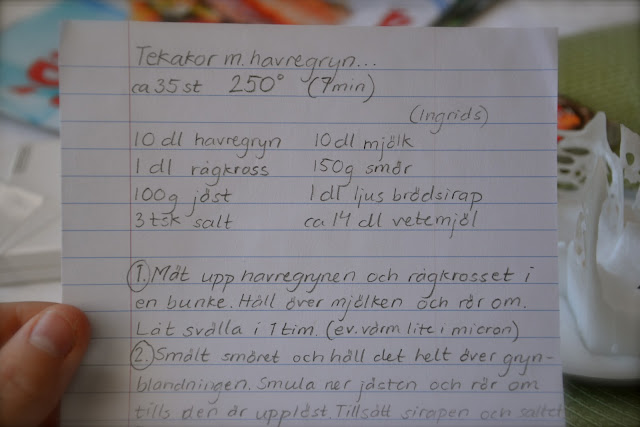 Tekakor m. havregryn...
ca 35 st 250° (7min)
(Ingrids)
10 dl havregryn 10 dl mjölk
1 dl rågkross 150g smör
100g jäst 1 dl ljus brödsirap
3 tsk salt ca 14 dl vetemjöl
1. Mät upp havregrynen och rågkrosset i
en bunke. Häll över mjölken och rör om.
Låt svälla i 1 tim. (ev. värm lite i micron)
2. Smält smöret och häll det helt över gryn-
blandningen. Smula ner jästen och rör om
tills den är upplöst. Tillsätt sirapen och saltet